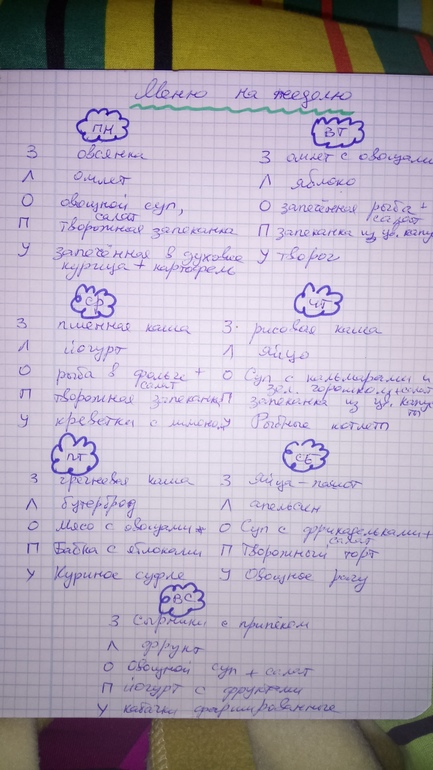 Меню на неделю
ПН
З овсянка
Л омлет
О овощной суп, салат
П творожная запеканка
У запечённая в духовке курица + картофель
ВТ
З омлет с овощами
Л яблоко
О запечённая рыба + салат
П запеканка из цв. капу
У творог
СР
З пшённая каша
Л йогурт
О рыба в фольге + салат
П творожная запеканка
У креветки с лимоном
ЧТ
З рисовая каша
Л яйцо
О Суп с кальмарами и зел. горошком, салат
П запеканка из цв. капусты
У Рыбные котлеты
ПТ
З гречневая каша
Л бутерброд
О мясо с овощами
П Бабка с яблоками
У Куриное суфле
СБ
З яйца-пашот
Л апельсин
О Суп с фрикадельками + салат
П Творожный торт
У Овощное рагу
ВС
З Сырники с припёком
Л фрукт
О овощной суп + салат
П йогурт с фруктами
У кабачки фаршированные